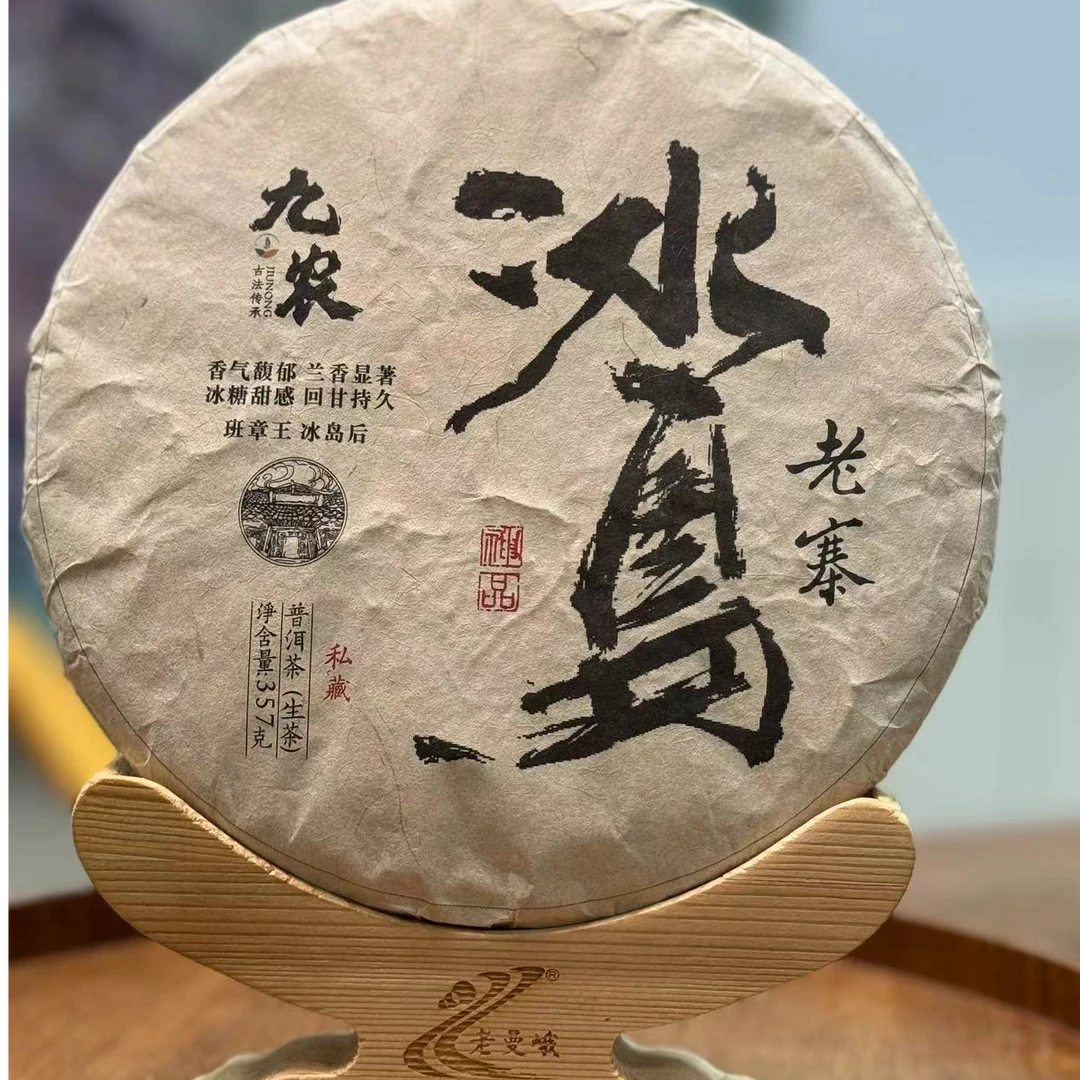 冰島
老寨
九农
古法传承
JIUNONG
香气馥郁 兰香显著
冰糖甜感 回甘持久
班章王 冰岛后
极品
私藏
普洱茶(生茶)
淨含量:357克
老曼峨
®